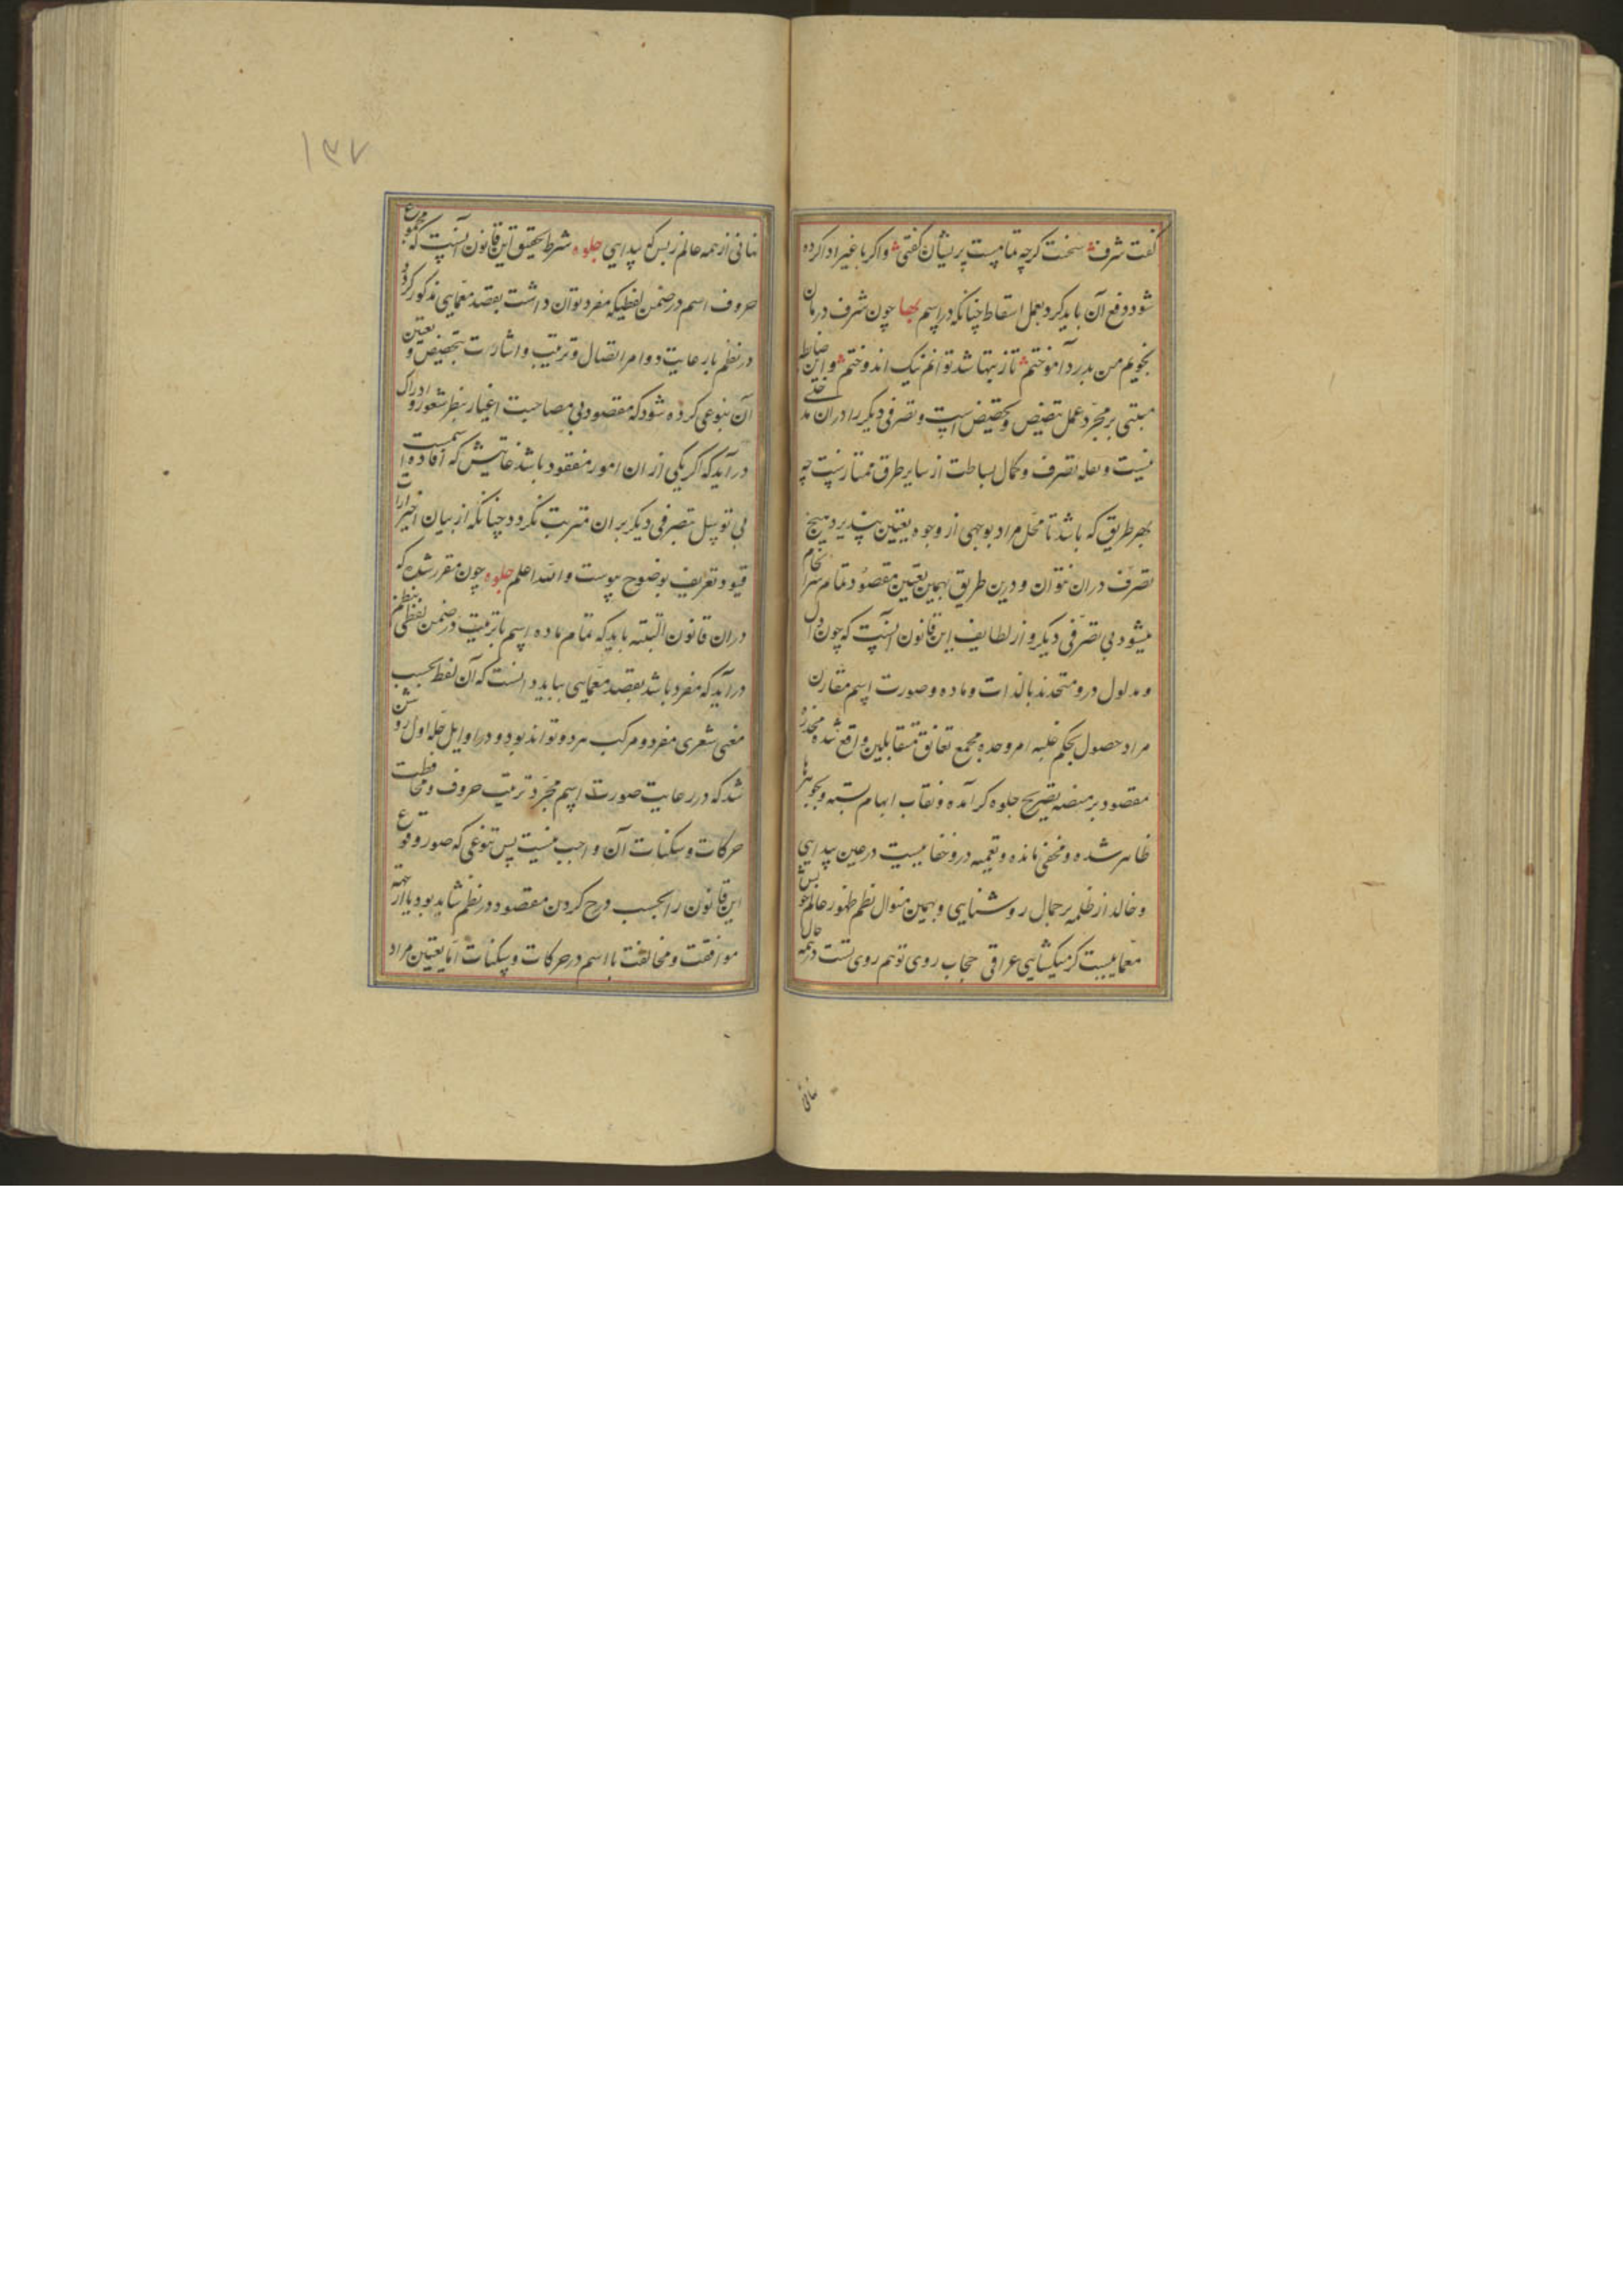 گفت شرف سخنت گرچه تمامیست پریشان گفتی و اگر با غیر ادا کرده
شود دفع آن باید کرد بعمل اسقاط چنانکه در اسم بها چون شرف درمان
بجویم من بدرد آموختم تا ز تنها شد توانم نیک اندوختم و این ضابطه
مبتنی بر مجرد عمل تنصیص و تخصیص است و تصرفی دیگر را در ان مدخلی
نیست و بقلت تصرف و کمال بساطت از سایر طرق ممتازست چه
بهر طریق که باشد تا محل مراد بوجهی از وجوه تعیین نپذیرد هیچ
تصرف دران نتوان و درین طریق بهمین تعیین مقصود تمام سرانجام
میشود بی تصرفی دیگر و از لطایف این قانون آنست که چون دال
و مدلول درو متحدند بالذات و ماده و صورت اسم مقارن
مراد حصول بحکم غلبه امر وحده مجمع تعانق متقابلین واقع شده مخدره
مقصود بر منصه تصریح جلوه گر آمده و نقاب ابهام بسته و بجوهرها
ظاهر شده و مخفی مانده و تعمیه درو خفاییست در عین پیدایی
و خالد از ظلمه بر جمال روشنایی و بهمین منوال نظم ظهور عالم
معماییست کز میکشایی عراقی حجاب روی تو هم روی تست در همه حال
نهانی
۱۳۷
نهانی از همه عالم ز بس که پیدایی جلوه شرط تحقیق این قانون آنست که مجموع
حروف اسم در ضمن لفظیکه مفرد توان داشت بقصد معمایی مذکور گردد
در نظم با رعایت دوام اتصال و ترتیب و اشارت بتخصیص و تعیین
آن بنوعی کرده شود که مقصود بی مصاحبت اغیار بنظر شعور و ادراک
درآید که اگر یکی از ان امور مفقود باشد غایتش که افاده اسمیت
بی توسل تصرفی دیگر بر ان مترتب نگردد چنانکه از بیان احتراز
قیود تعریف بوضوح پیوست والله اعلم جلوه چون مقرر شد که
دران قانون البته باید که تمام ماده اسم با ترتیب در ضمن لفظی بنظم
درآید که مفرد باشد بقصد معمایی بباید دانست که آن لفظ بحسب
معنی شعری مفرد و مرکب هر دو تواند بود و در اوایل حله اول روشن
شد که در رعایت صورت اسم مجرد ترتیب حروف و محافظت
حرکات و سکنات آن واجب نیست پس تنوعی که صور وقوع
این قانون را بحسب درج کردن مقصود در نظم شاید بود یا از جهة
موافقت و مخالفت با اسم در حرکات و سکنات اما تعیین مراد